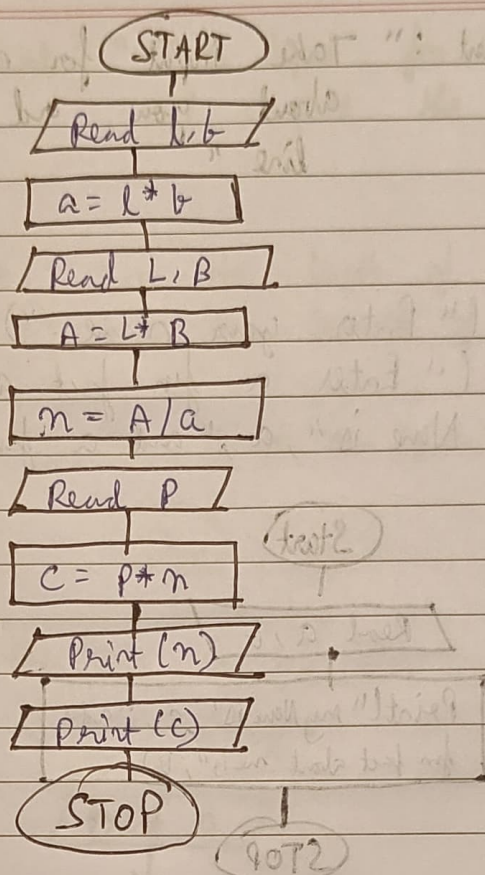 START
Read l, b
a = l * b
Read L, B
A = L * B
n = A / a
Read P
C = P * n
Print (n)
Print (C)
STOP